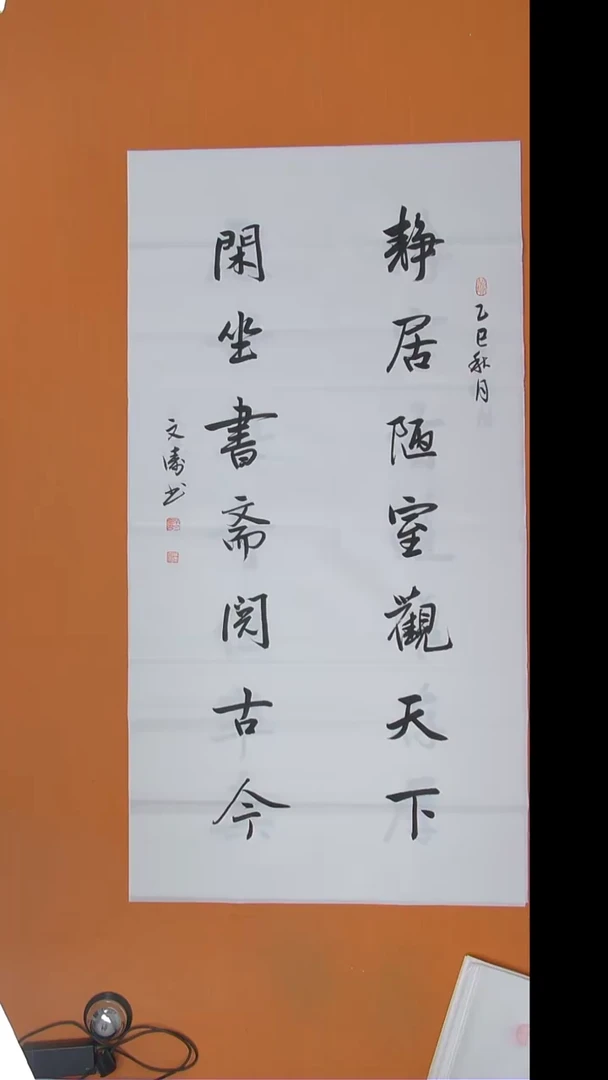 乙巳秋月
静居陋室觀天下
閑坐書斋阅古今
文涛书